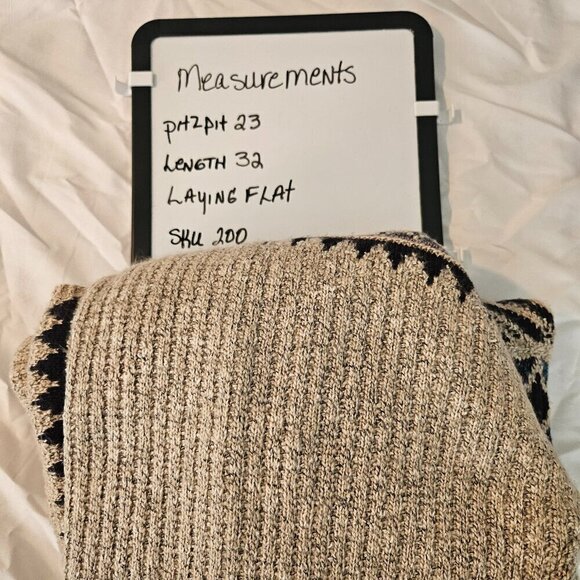 Measurements
pit2pit 23
LENGTH 32
LAYING FLAt
SKU 200